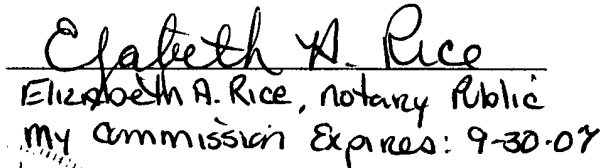 Elizabeth A. Rice
Elizabeth A. Rice, Notary Public
My Commission Expires: 9-30-07